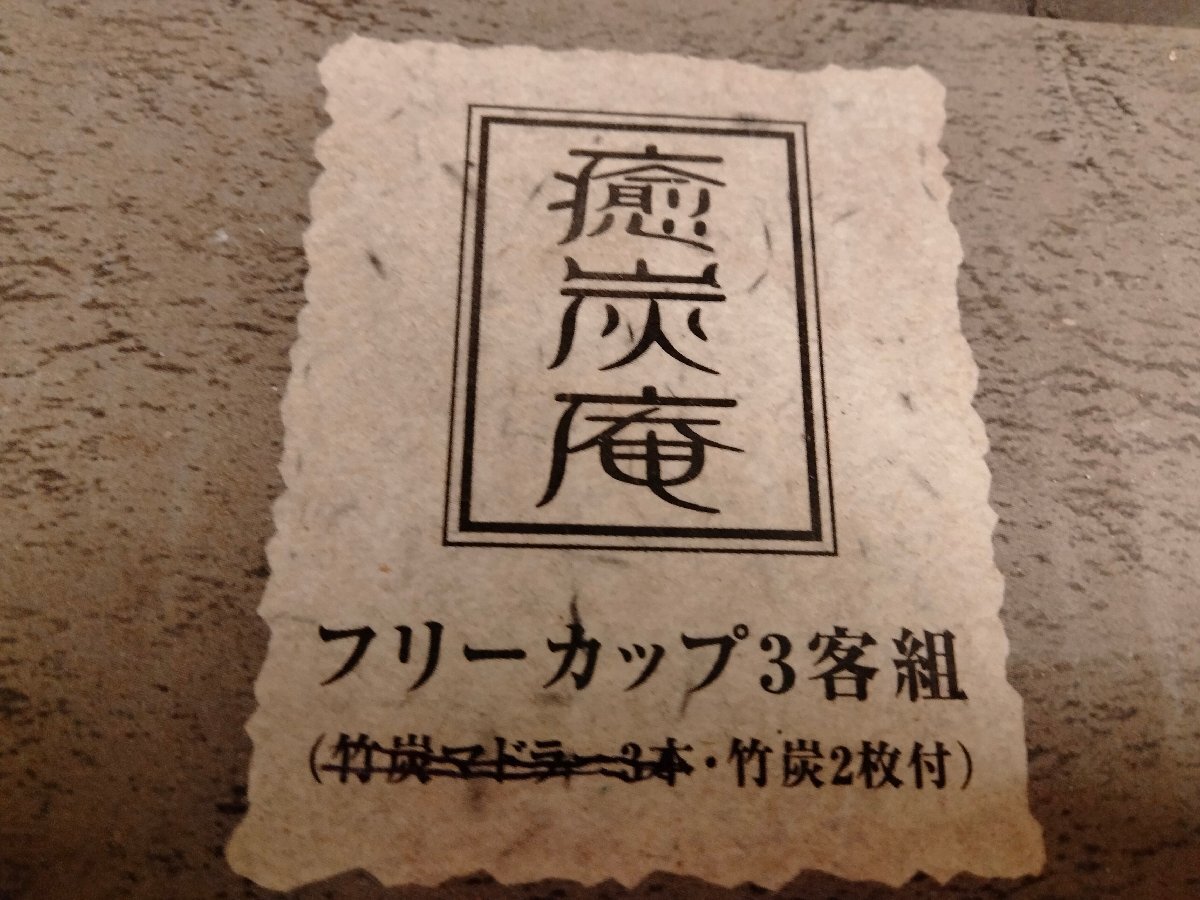 癒炭庵
フリーカップ3客組
(竹炭マドラー3本・竹炭2枚付)